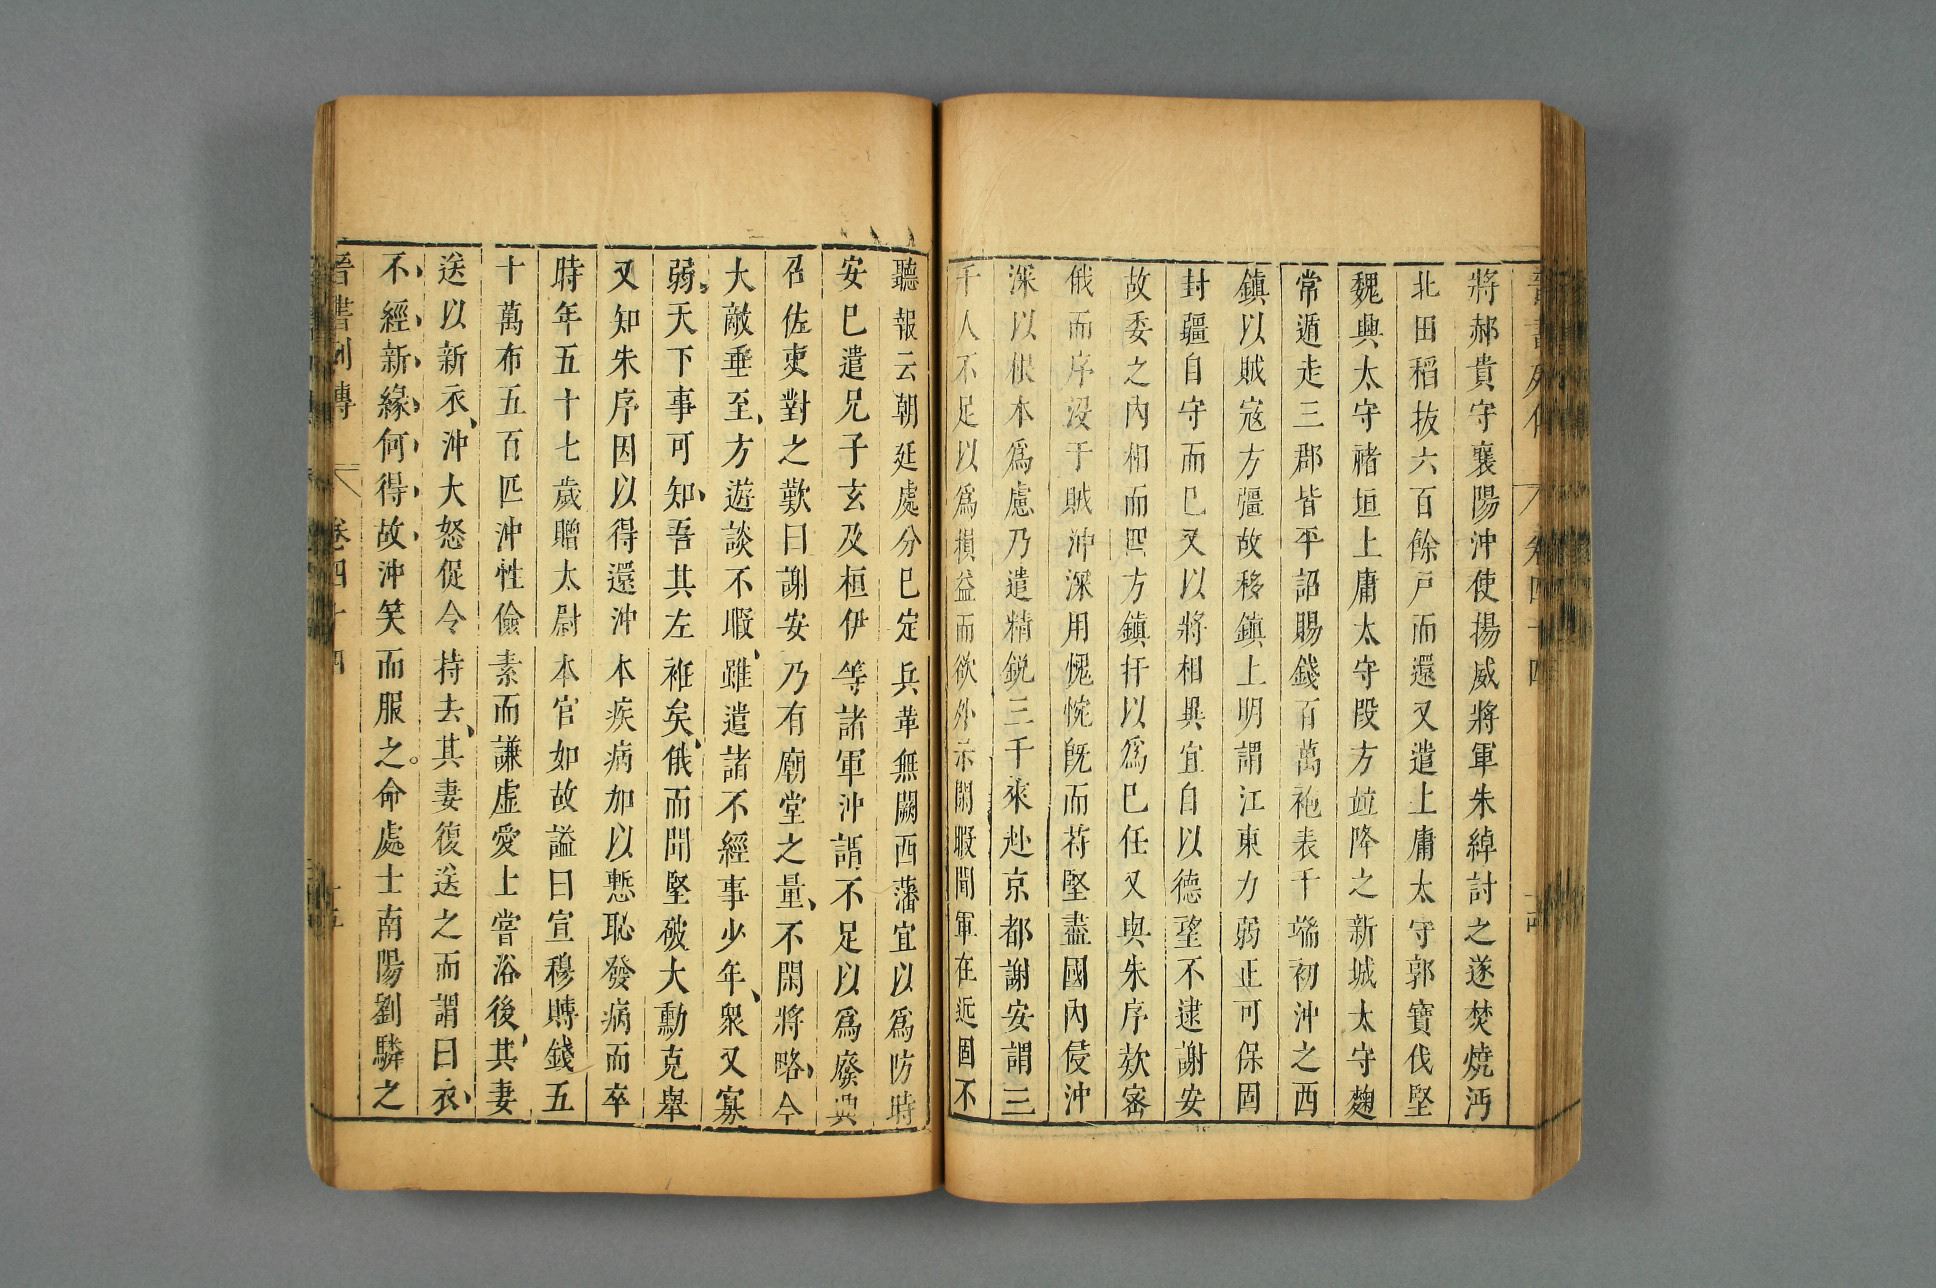 晉書列傳 卷四十四 十四
將郝貴守襄陽沖使揚威將軍朱綽討之遂焚燒沔
北田稻拔六百餘戸而還又遣上庸太守郭寶伐堅
魏興太守褚垣上庸太守段方竝降之新城太守麴
常遁走三郡皆平詔賜錢百萬袍表千端初沖之西
鎮以賊寇方彊故移鎮上明謂江東力弱正可保固
封疆自守而已又以將相異宜自以德望不逮謝安
故委之內相而四方鎮扞以爲已任又與朱序欵密
俄而序沒于賊沖深用愧惋旣而苻堅盡國內侵沖
深以根本爲慮乃遣精銳三千來赴京都謝安謂三
千人不足以爲損益而欲外示閑暇聞軍在近固不
聽報云朝廷處分已定兵革無闕西藩宜以爲防時
安已遣兄子玄及桓伊等諸軍沖謂不足以爲廢興
召佐吏對之歎曰謝安乃有廟堂之量、不閑將略、今
大敵垂至、方遊談不暇、雖遣諸不經事少年、衆又寡
弱、天下事可知、吾其左袵矣、俄而聞堅破大勳克舉
又知朱序因以得還沖本疾病加以慙恥發病而卒
時年五十七歲贈太尉本官如故謚曰宣穆賻錢五
十萬布五百匹沖性儉素而謙虛愛士嘗浴後、其妻
送以新衣、沖大怒促令持去、其妻復送之而謂曰衣、
不、經、新、緣、何、得、故、沖笑而服之。命處士南陽劉驎之
晉書列傳 卷四十四 十五